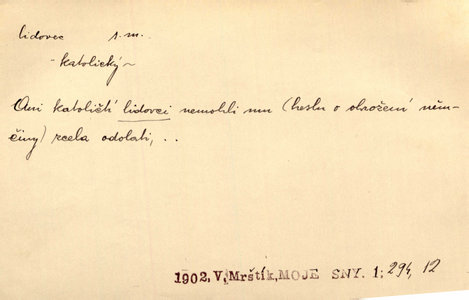 lidovec s.m.
- katolický ~
Ani katoličtí lidovci nemohli mu (heslu o obrození něm-
činy) zcela odolati, . .
1902, V. Mrštík, MOJE SNY. 1; 294, 12